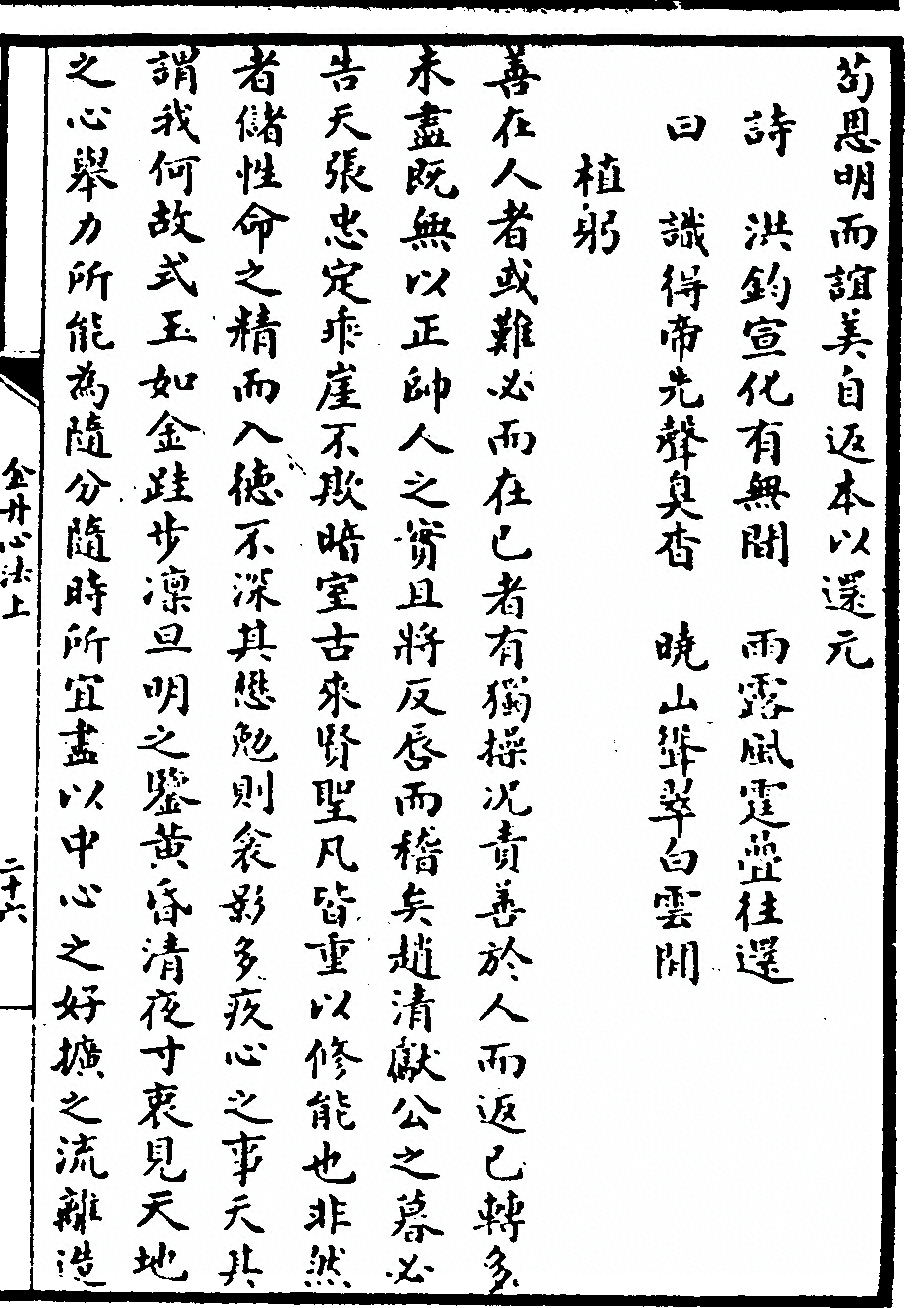 苟恩明而誼美自返本以還元
詩　洪鈞宣化有無間　雨露風霆疊往還
曰　識得帝先聲臭杳　曉山聳翠白雲閒
植躬
善在人者或難必而在己者有獨操况責善於人而返己轉多
未盡既無以正帥人之實且將反唇而稽矣趙清獻公之暮必
告天張忠定乖崖不欺暗室古來賢聖凡皆重以修能也非然
者儲性命之精而入德不深其懋勉則衾影多疚心之事天其
謂我何故式玉如金跬步凜旦明之鑒黃昏清夜寸衷見天地
之心舉力所能為隨分隨時所宜盡以中心之好擴之流離造
金丹心法上
二十六